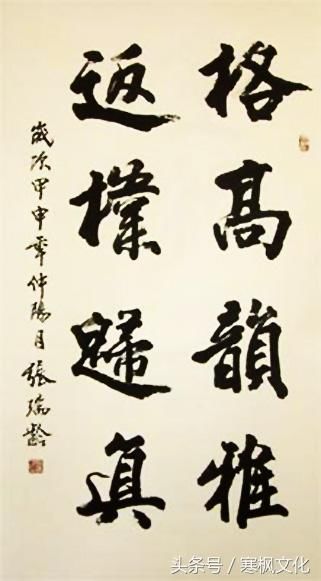 格高韻雅
返樸歸真
歲次甲申年仲陽月張瑞齡
头条号 / 寒枫文化